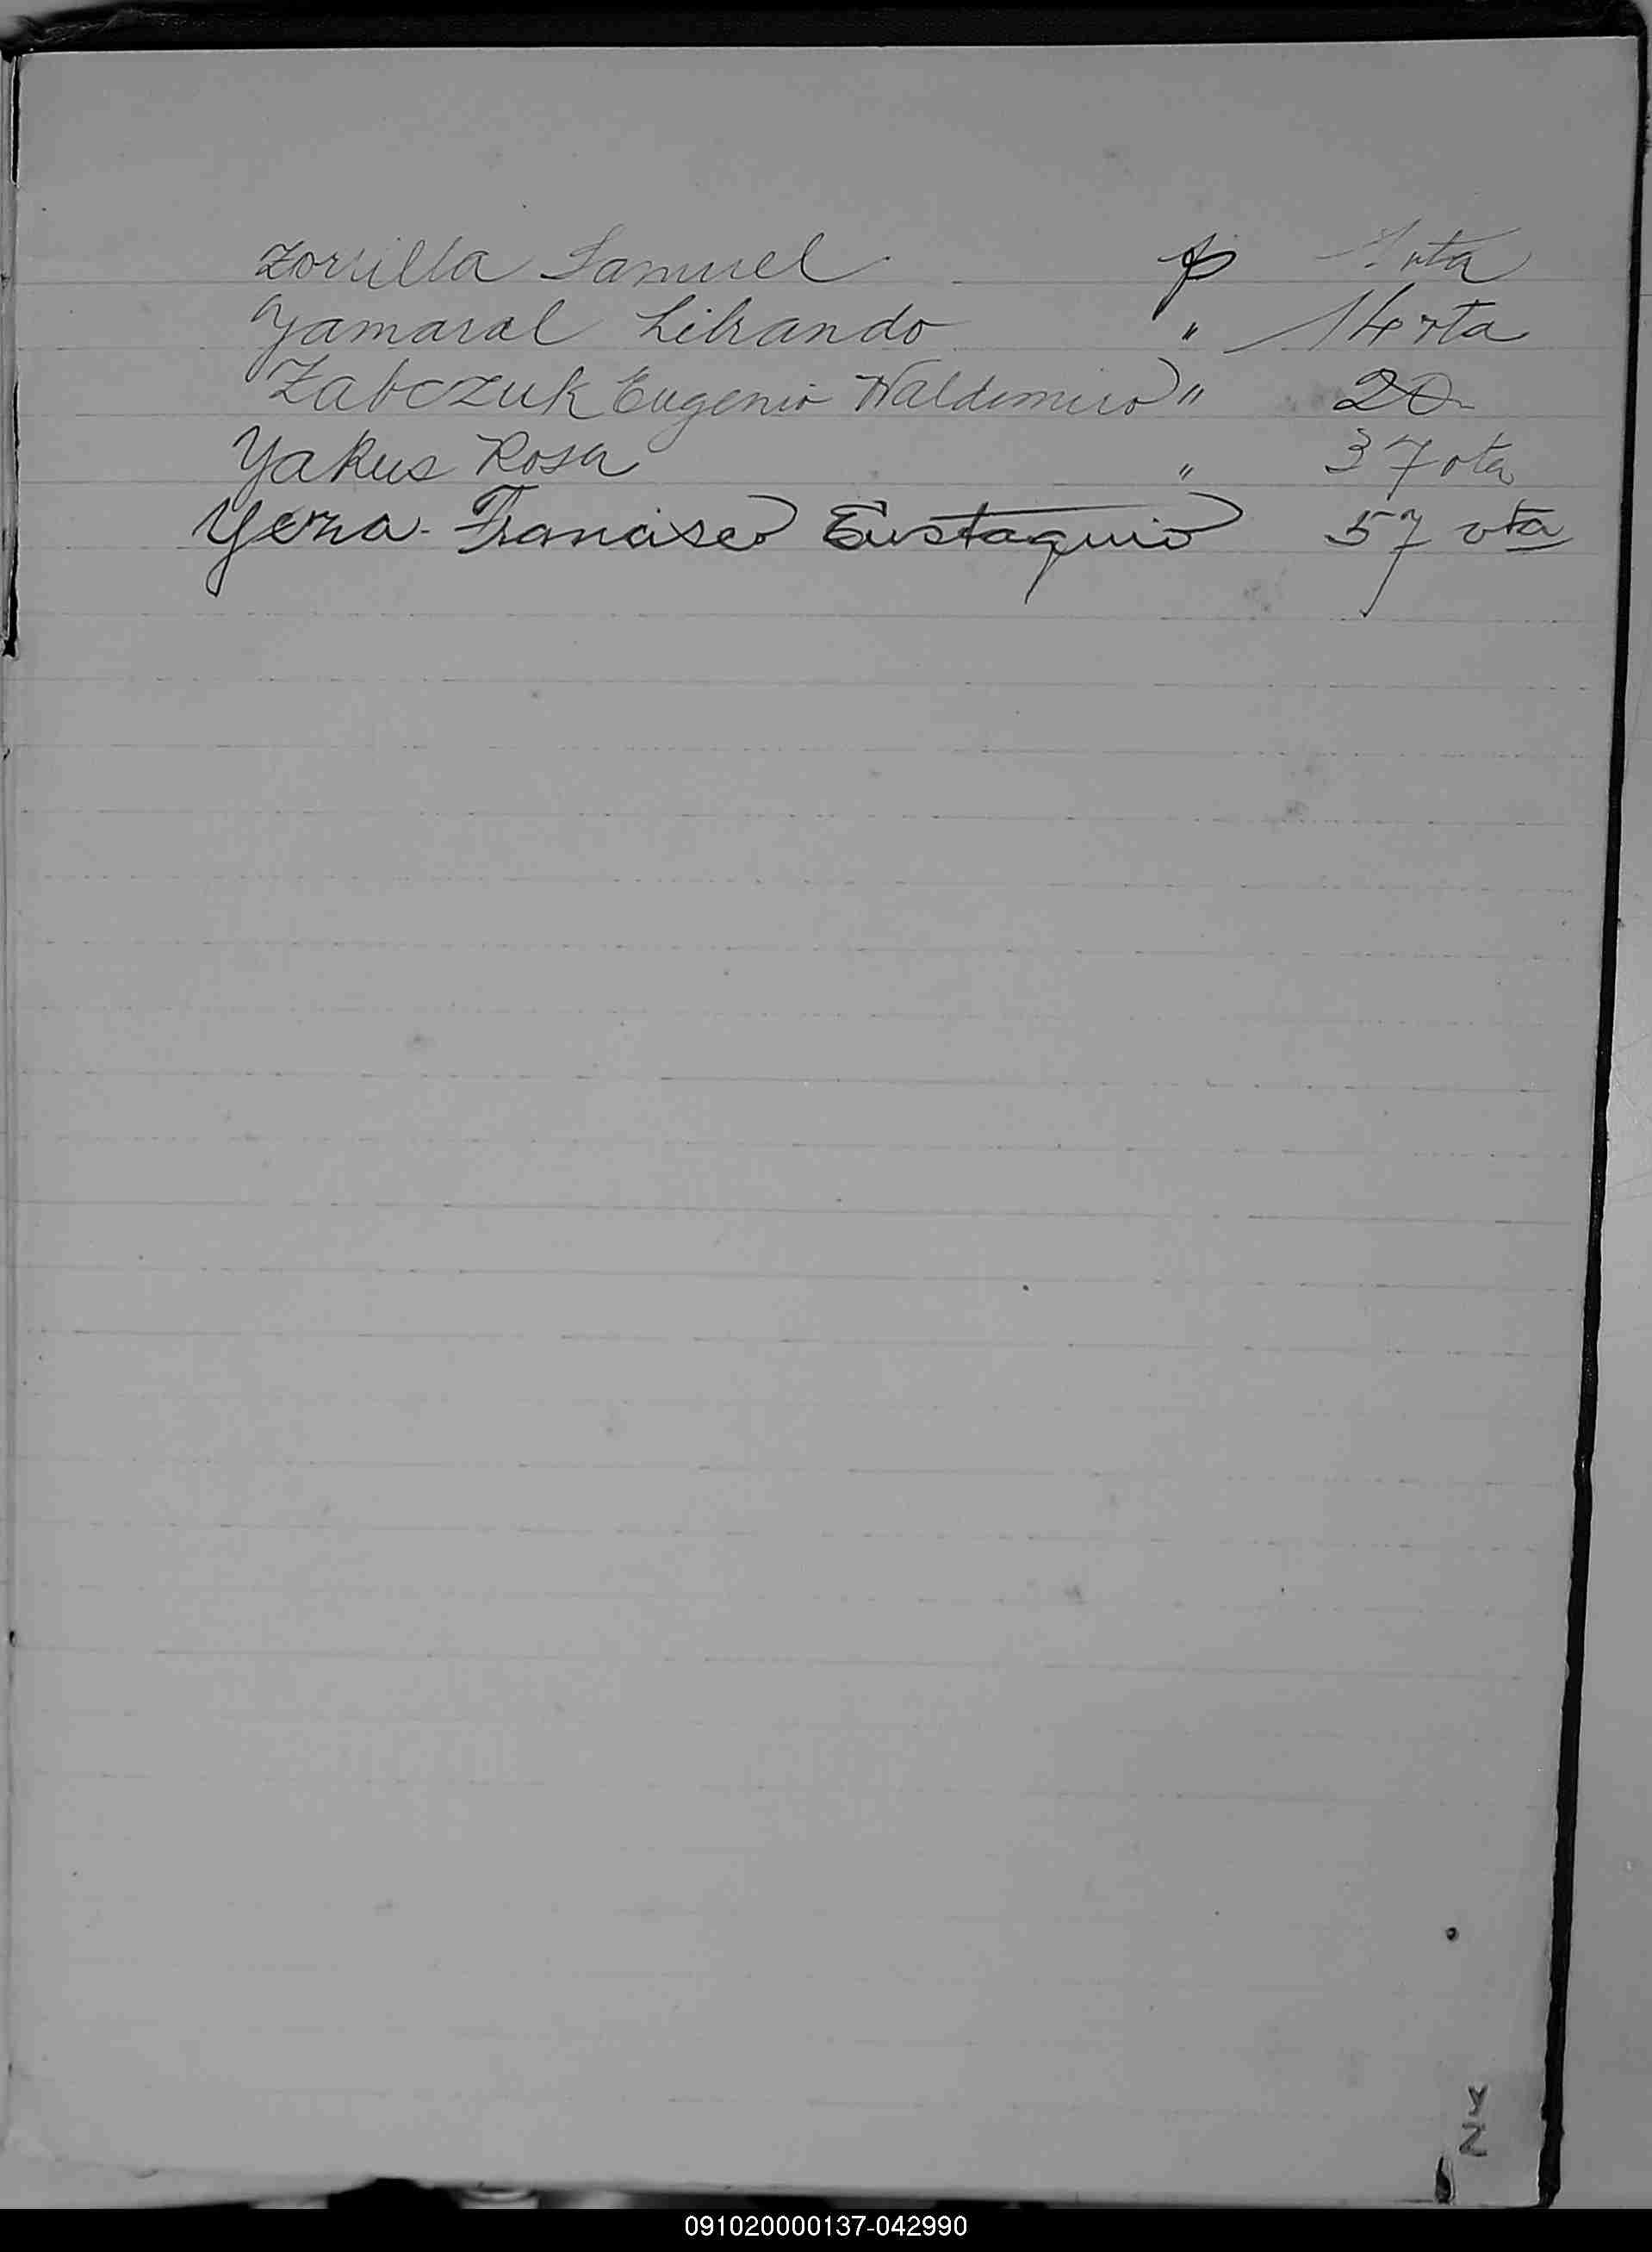 Zorrilla Samuel p 1 vta
Yamaral Librando " 14 vta
Zabczuk Eugenio Waldimiro " 20
Yakus Rosa " 37 vta
Yerza Francisco Eustaquio 57 vta
Y
Z
091020000137-042990